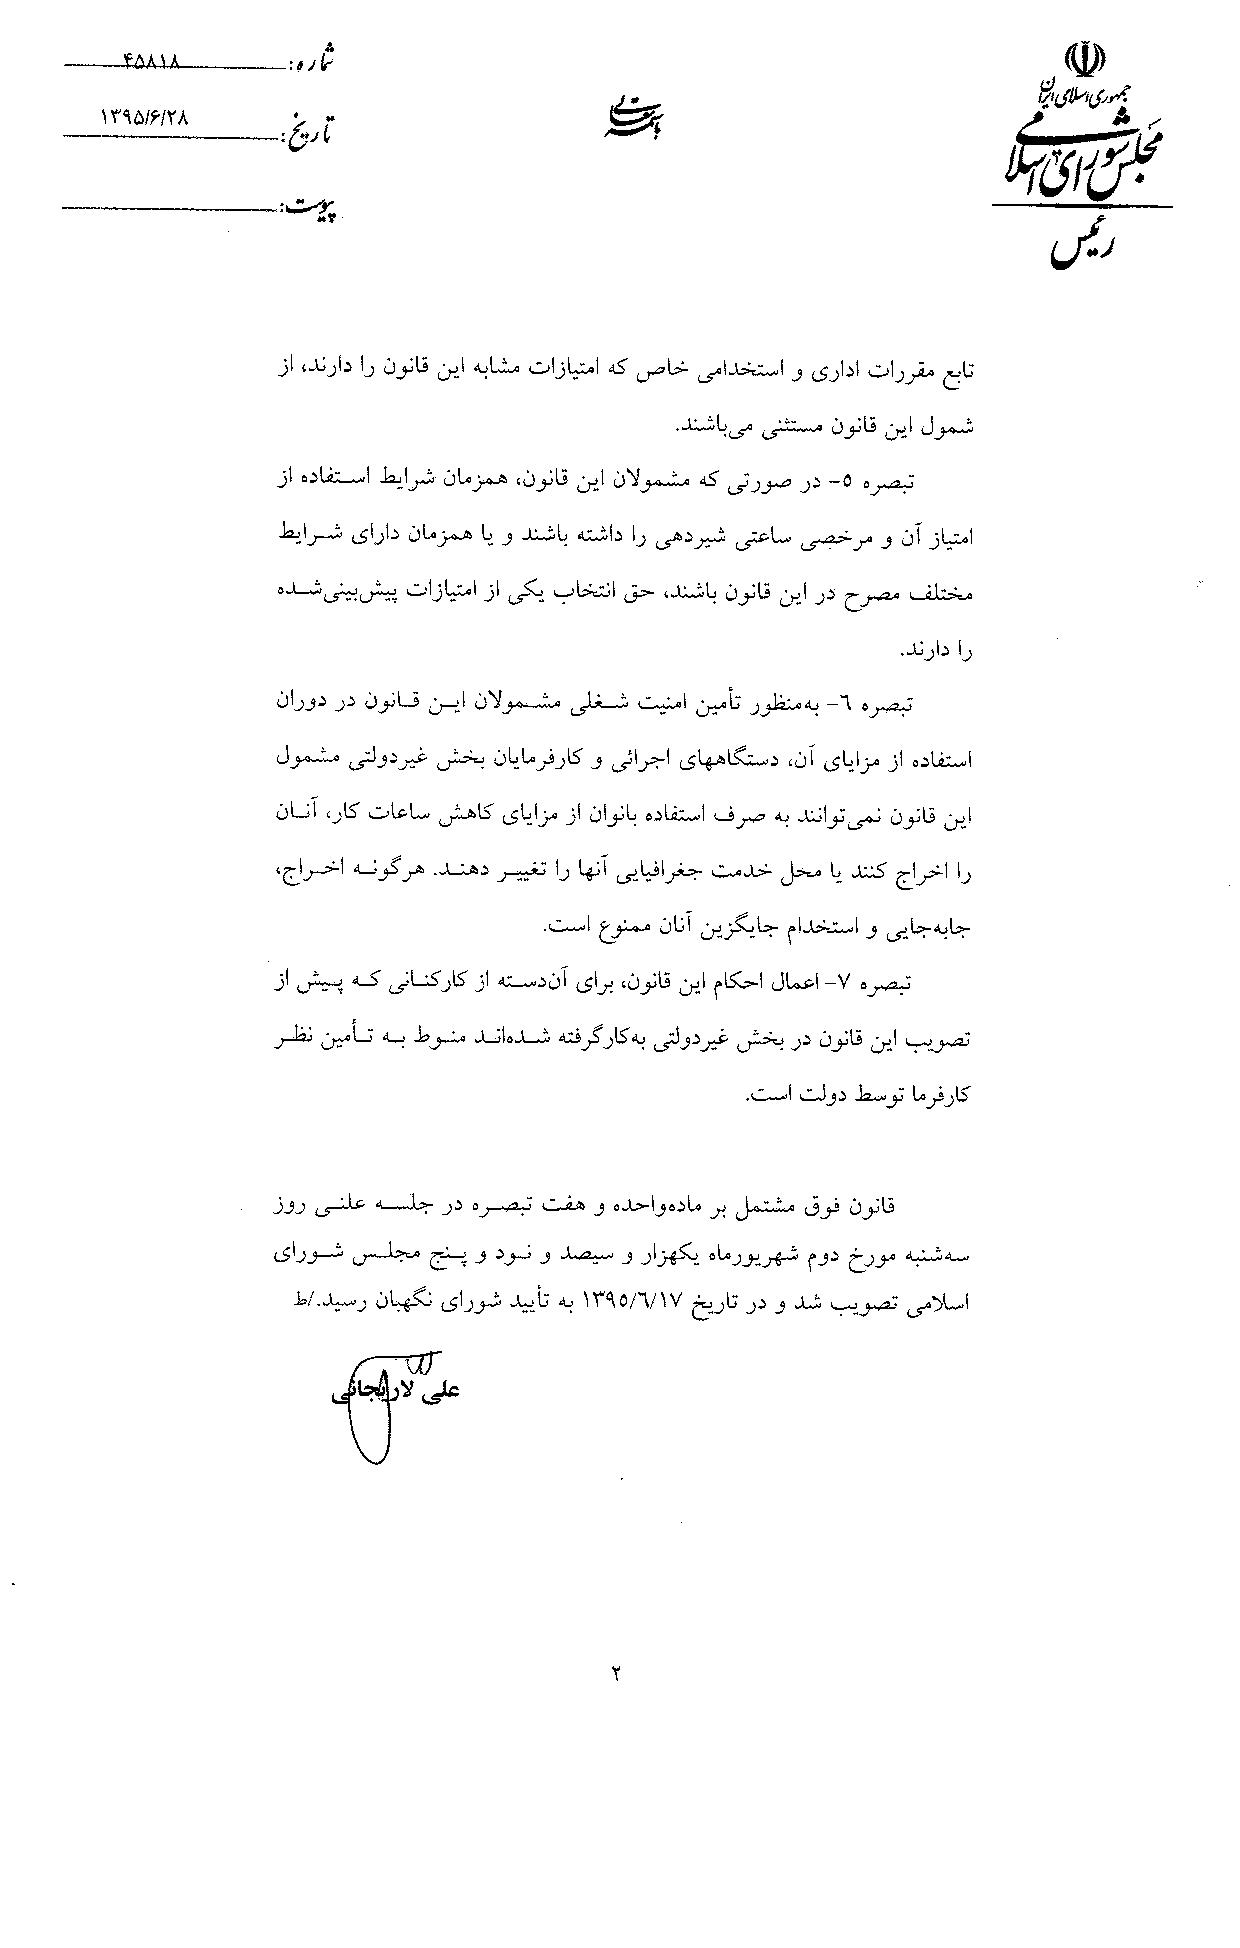 جمهوری اسلامی ایران
مجلس شورای اسلامی
رئیس
باسمه تعالی
شماره: ۴۵۸۱۸
تاریخ: ۱۳۹۵/۶/۲۸
پیوست:
تابع مقررات اداری و استخدامی خاص که امتیازات مشابه این قانون را دارند، از
شمول این قانون مستثنی می‌باشند.
تبصره ۵- در صورتی که مشمولان این قانون، همزمان شرایط استفاده از
امتیاز آن و مرخصی ساعتی شیردهی را داشته باشند و یا همزمان دارای شرایط
مختلف مصرح در این قانون باشند، حق انتخاب یکی از امتیازات پیش‌بینی‌شده
را دارند.
تبصره ۶- به‌منظور تأمین امنیت شغلی مشمولان این قانون در دوران
استفاده از مزایای آن، دستگاههای اجرائی و کارفرمایان بخش غیردولتی مشمول
این قانون نمی‌توانند به صرف استفاده بانوان از مزایای کاهش ساعات کار، آنان
را اخراج کنند یا محل خدمت جغرافیایی آنها را تغییر دهند. هرگونه اخراج،
جابه‌جایی و استخدام جایگزین آنان ممنوع است.
تبصره ۷- اعمال احکام این قانون، برای آن‌دسته از کارکنانی که پیش از
تصویب این قانون در بخش غیردولتی به‌کارگرفته شده‌اند منوط به تأمین نظر
کارفرما توسط دولت است.
قانون فوق مشتمل بر ماده‌واحده و هفت تبصره در جلسه علنی روز
سه‌شنبه مورخ دوم شهریورماه یکهزار و سیصد و نود و پنج مجلس شورای
اسلامی تصویب شد و در تاریخ ۱۳۹۵/۶/۱۷ به تأیید شورای نگهبان رسید./ط
علی لاریجانی
۲